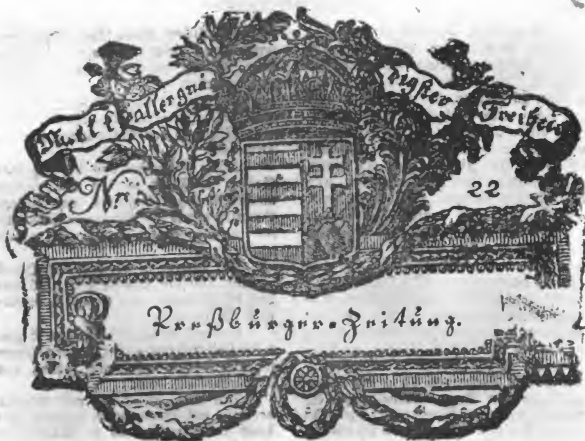 Mit allergnä digster Freiheit
Nr. 22
Preßburger-Zeitung.